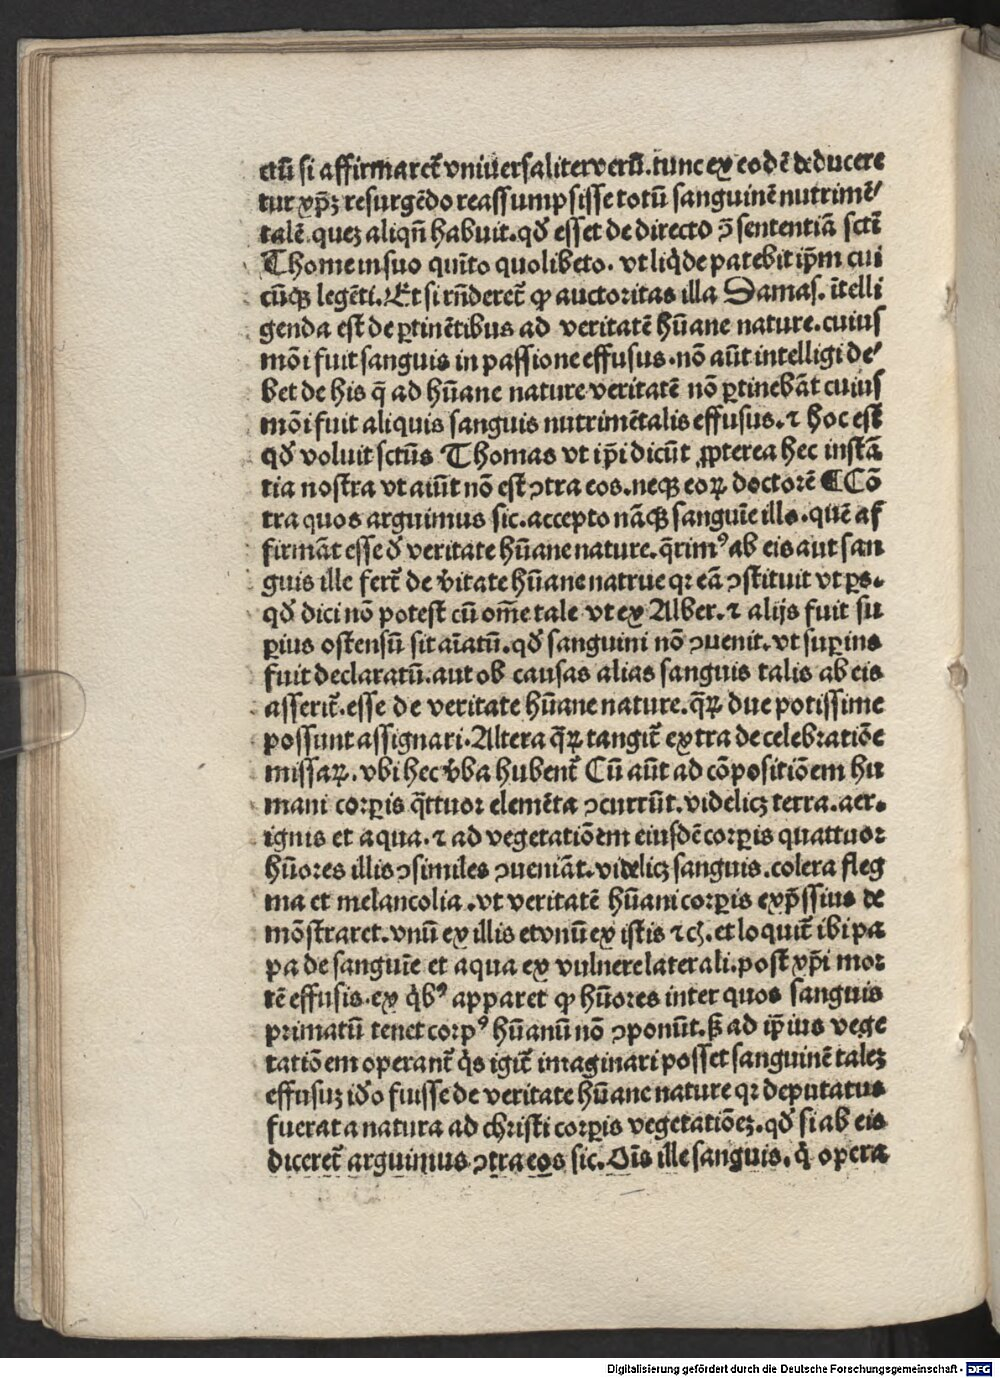 ctū si affirmaret᷑ vniuersaliter verū. tunc ex eodē deducere
tur xp̄ꝫ resurgēdo reassumpsisse totū sanguinē nutrimē/
talē. queꝫ aliqn̄ habuit. qd̛ esset de directo ↄ̄ sententiā scti̅
Thome in suo quīto quolibeto. vt liq̇de patebit ip̄m cui
cūqꝫ legēti. Et si rn̄deret᷑ ꝙ auctoritas illa Damas. ītelli
genda est de ꝑtinētibus ad veritatē hūane nature. cuius
mōi fuit sanguis in passione effusus. nō aūt intelligi de/
bet de his q̄ ad hūane nature veritatē nō ꝑtinebāt cuius
mōi fuit aliquis sanguis nutrimētalis effusus. ⁊ hoc est
qd̛ voluit sctūs Thomas vt ip̄i dicūt ꝓpterea hec instā
tia nostra vt aiūt nō est ↄtra eos. neqꝫ eoꝝ doctorē ¶ Cō
tra quos arguimus sic. accepto nāqꝫ sanguīe illo. quē af
firmāt esse d̛ veritate hūane nature. q̄rimꝰ ab eis aut san
guis ille fert᷑ de v̛itate hūane natrue qꝛ eā ↄstituit vt ꝑs.
qd̛ dici nō potest cū om̄e tale vt ex Alber. ⁊ alijs fuit su
ꝑius ostensū sit aīatū. qd̛ sanguini nō ↄuenit. vt suꝑius
fuit declaratū. aut ob causas alias sanguis talis ab eis
asserit᷑. esse de veritate hūane nature. q̄ꝝ due potissime
possunt assignari. Altera q̄ꝝ tangit᷑ extra de celebratiōe
missaꝝ. vbi hec v̛ba hubent᷑ Cū aūt ad cōpositiōem hu
mani corꝑis q̄ttuor elemēta ↄcurrūt. videlicꝫ terra. aer.
ignis et aqua. ⁊ ad vegetatiōem eiusdē corꝑis quattuor
hūores illis ↄsimiles ↄueniāt. videlicꝫ sanguis. colera fleg
ma et melancolia. vt veritatē hūani corꝑis exp̄ssius de
mōstraret. vnū ex illis et vnū ex istis ⁊cꝫ. et loquit᷑ ibi pa
pa de sanguīe et aqua ex vulnere laterali. post xp̄i mor
tē effusis. ex q̇bꝰ apparet ꝙ hūores inter quos sanguis
primatū tenet corpꝰ hūanū nō ↄponūt. ß ad ip̄ius vege
tatiōem operant᷑ q̇s igit᷑ imaginari posset sanguinē taleꝫ
effusuꝫ id̛o fuisse de veritate hūane nature qꝛ deputatus
fuerat a natura ad christi corꝑis vegetatiōeꝫ. qd̛ si ab eis
diceret᷑ arguimus ↄtra eos sic. Oīs ille sanguis. q̇ opera
Digitalisierung gefördert durch die Deutsche Forschungsgemeinschaft - DFG